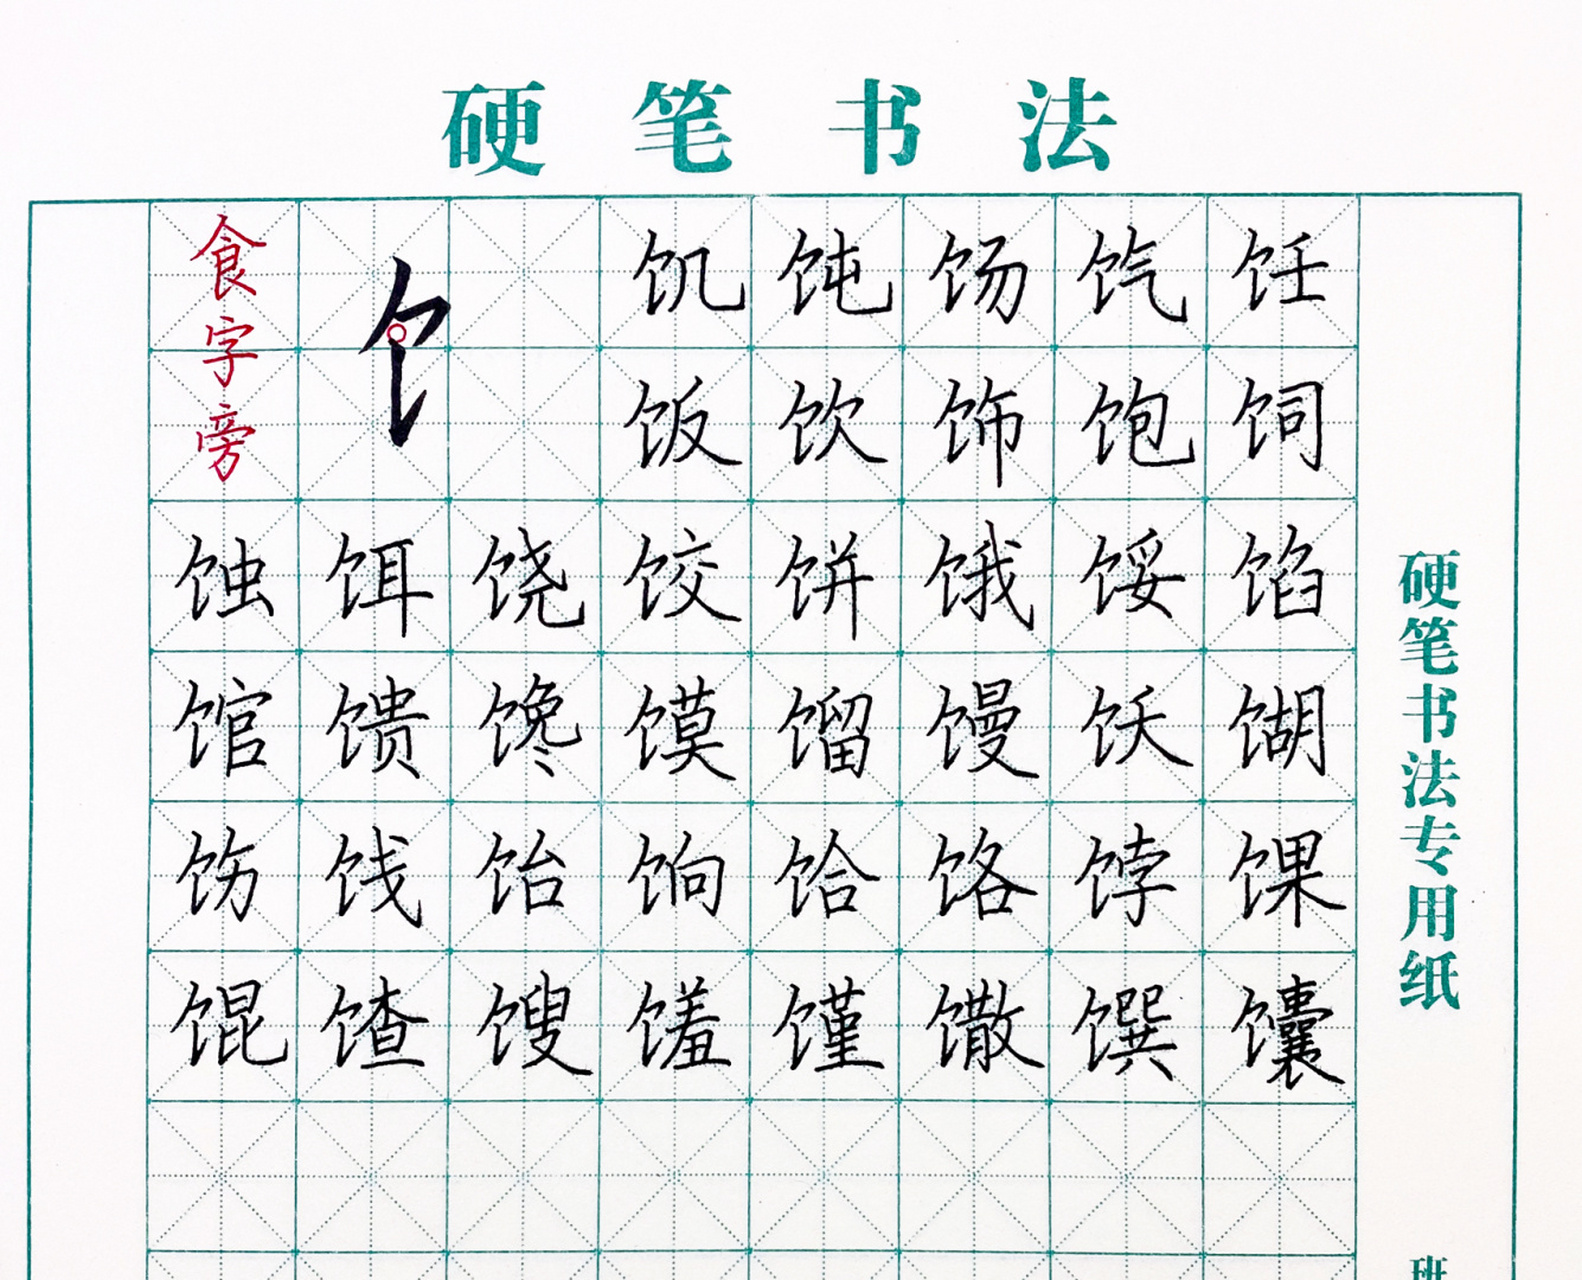 硬笔书法
食字旁
饣
饥饨饧饩饪
饭饮饰饱饲
蚀饵饶饺饼饿馁馅
馆馈馋馍馏馒饫𫗫
饬饯饴饷饸饹饽馃
馄馇馊馐馑馓馔馕
硬笔书法专用纸
班